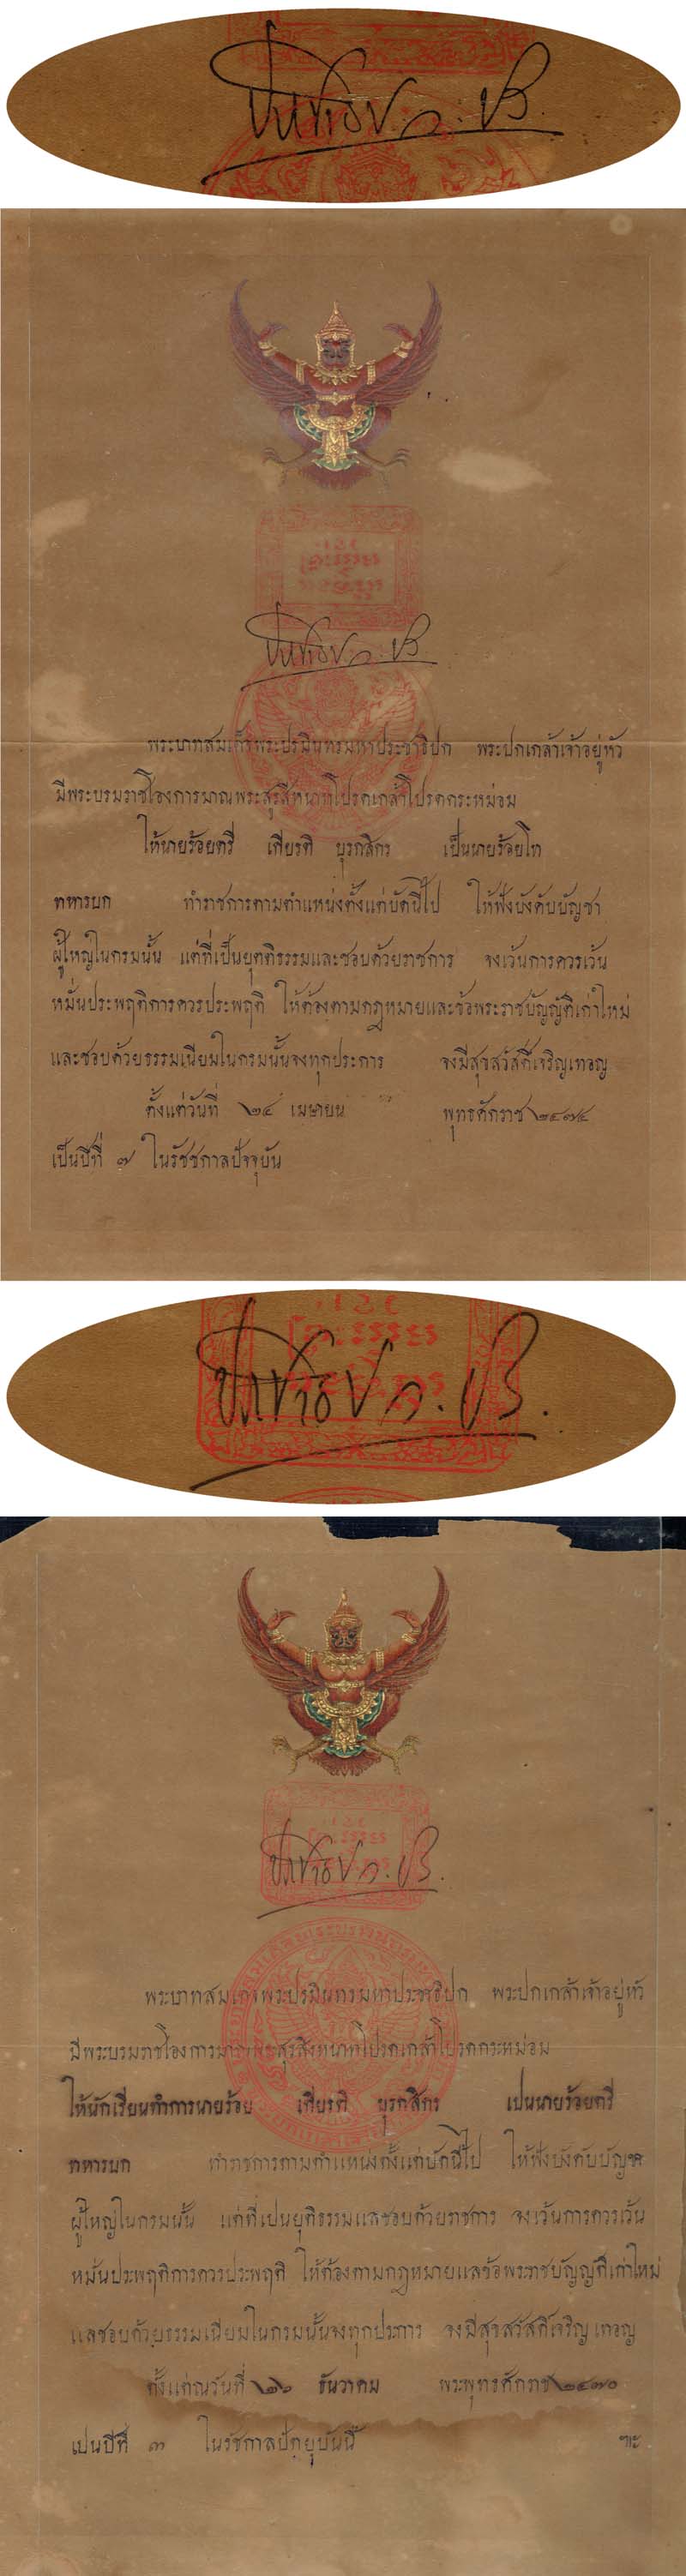 ประชาธิปก. ปร.
ประชาธิปก. ปร.
พระบาทสมเด็จพระปรมินทรมหาประชาธิปก พระปกเกล้าเจ้าอยู่หัว
มีพระบรมราชโองการมาณพระสุรสีหนาทโปรดเกล้าโปรดกระหม่อม
ให้นายร้อยตรี เศียรศิ บุรกสิกร เป็นนายร้อยโท
ทหารบก ทำราชการตามตำแหน่งตั้งแต่บัดนี้ไป ให้ฟังบังคับบัญชา
ผู้ใหญ่ในกรมนั้น แต่ที่เป็นยุตติธรรมและชอบด้วยราชการ จงเว้นการควรเว้น
หมั่นประพฤติการควรประพฤติ ให้ต้องตามกฎหมายและข้อพระราชบัญญัติเก่าใหม่
และชอบด้วยธรรมเนียมในกรมนั้นจงทุกประการ จงมีสุขสวัสดิ์เจริญเทอญ
ตั้งแต่วันที่ ๒๔ เมษายน พุทธศักราช ๒๔๗๔
เป็นปีที่ ๗ ในรัชชกาลปัจจุบัน
ประชาธิปก. ปร.
ประชาธิปก. ปร.
พระบาทสมเด็จพระปรมินทรมหาประชาธิปก พระปกเกล้าเจ้าอยู่หัว
มีพระบรมราชโองการมาณพระสุรสิงหนาทโปรดเกล้าโปรดกระหม่อม
ให้นักเรียนทำการนายร้อย เศียรศิ บุรกสิกร เปนนายร้อยตรี
ทหารบก ทำราชการตามตำแหน่งตั้งแต่บัดนี้ไป ให้ฟังบังคับบัญชา
ผู้ใหญ่ในกรมนั้น แต่ที่เปนยุติธรรมแลชอบด้วยราชการ จงเว้นการควรเว้น
หมั่นประพฤติการควรประพฤติ ให้ต้องตามกฎหมายแลข้อพระราชบัญญัติเก่าใหม่
แลชอบด้วยธรรมเนียมในกรมนั้นจงทุกประการ จงมีสุขสวัสดิ์เจริญ เทอญ
ตั้งแต่ณวันที่ ๒๖ ธันวาคม พระพุทธศักราช ๒๔๗๐
เปนปีที่ ๓ ในรัชกาลปัตยุบันนี้ ฯะ